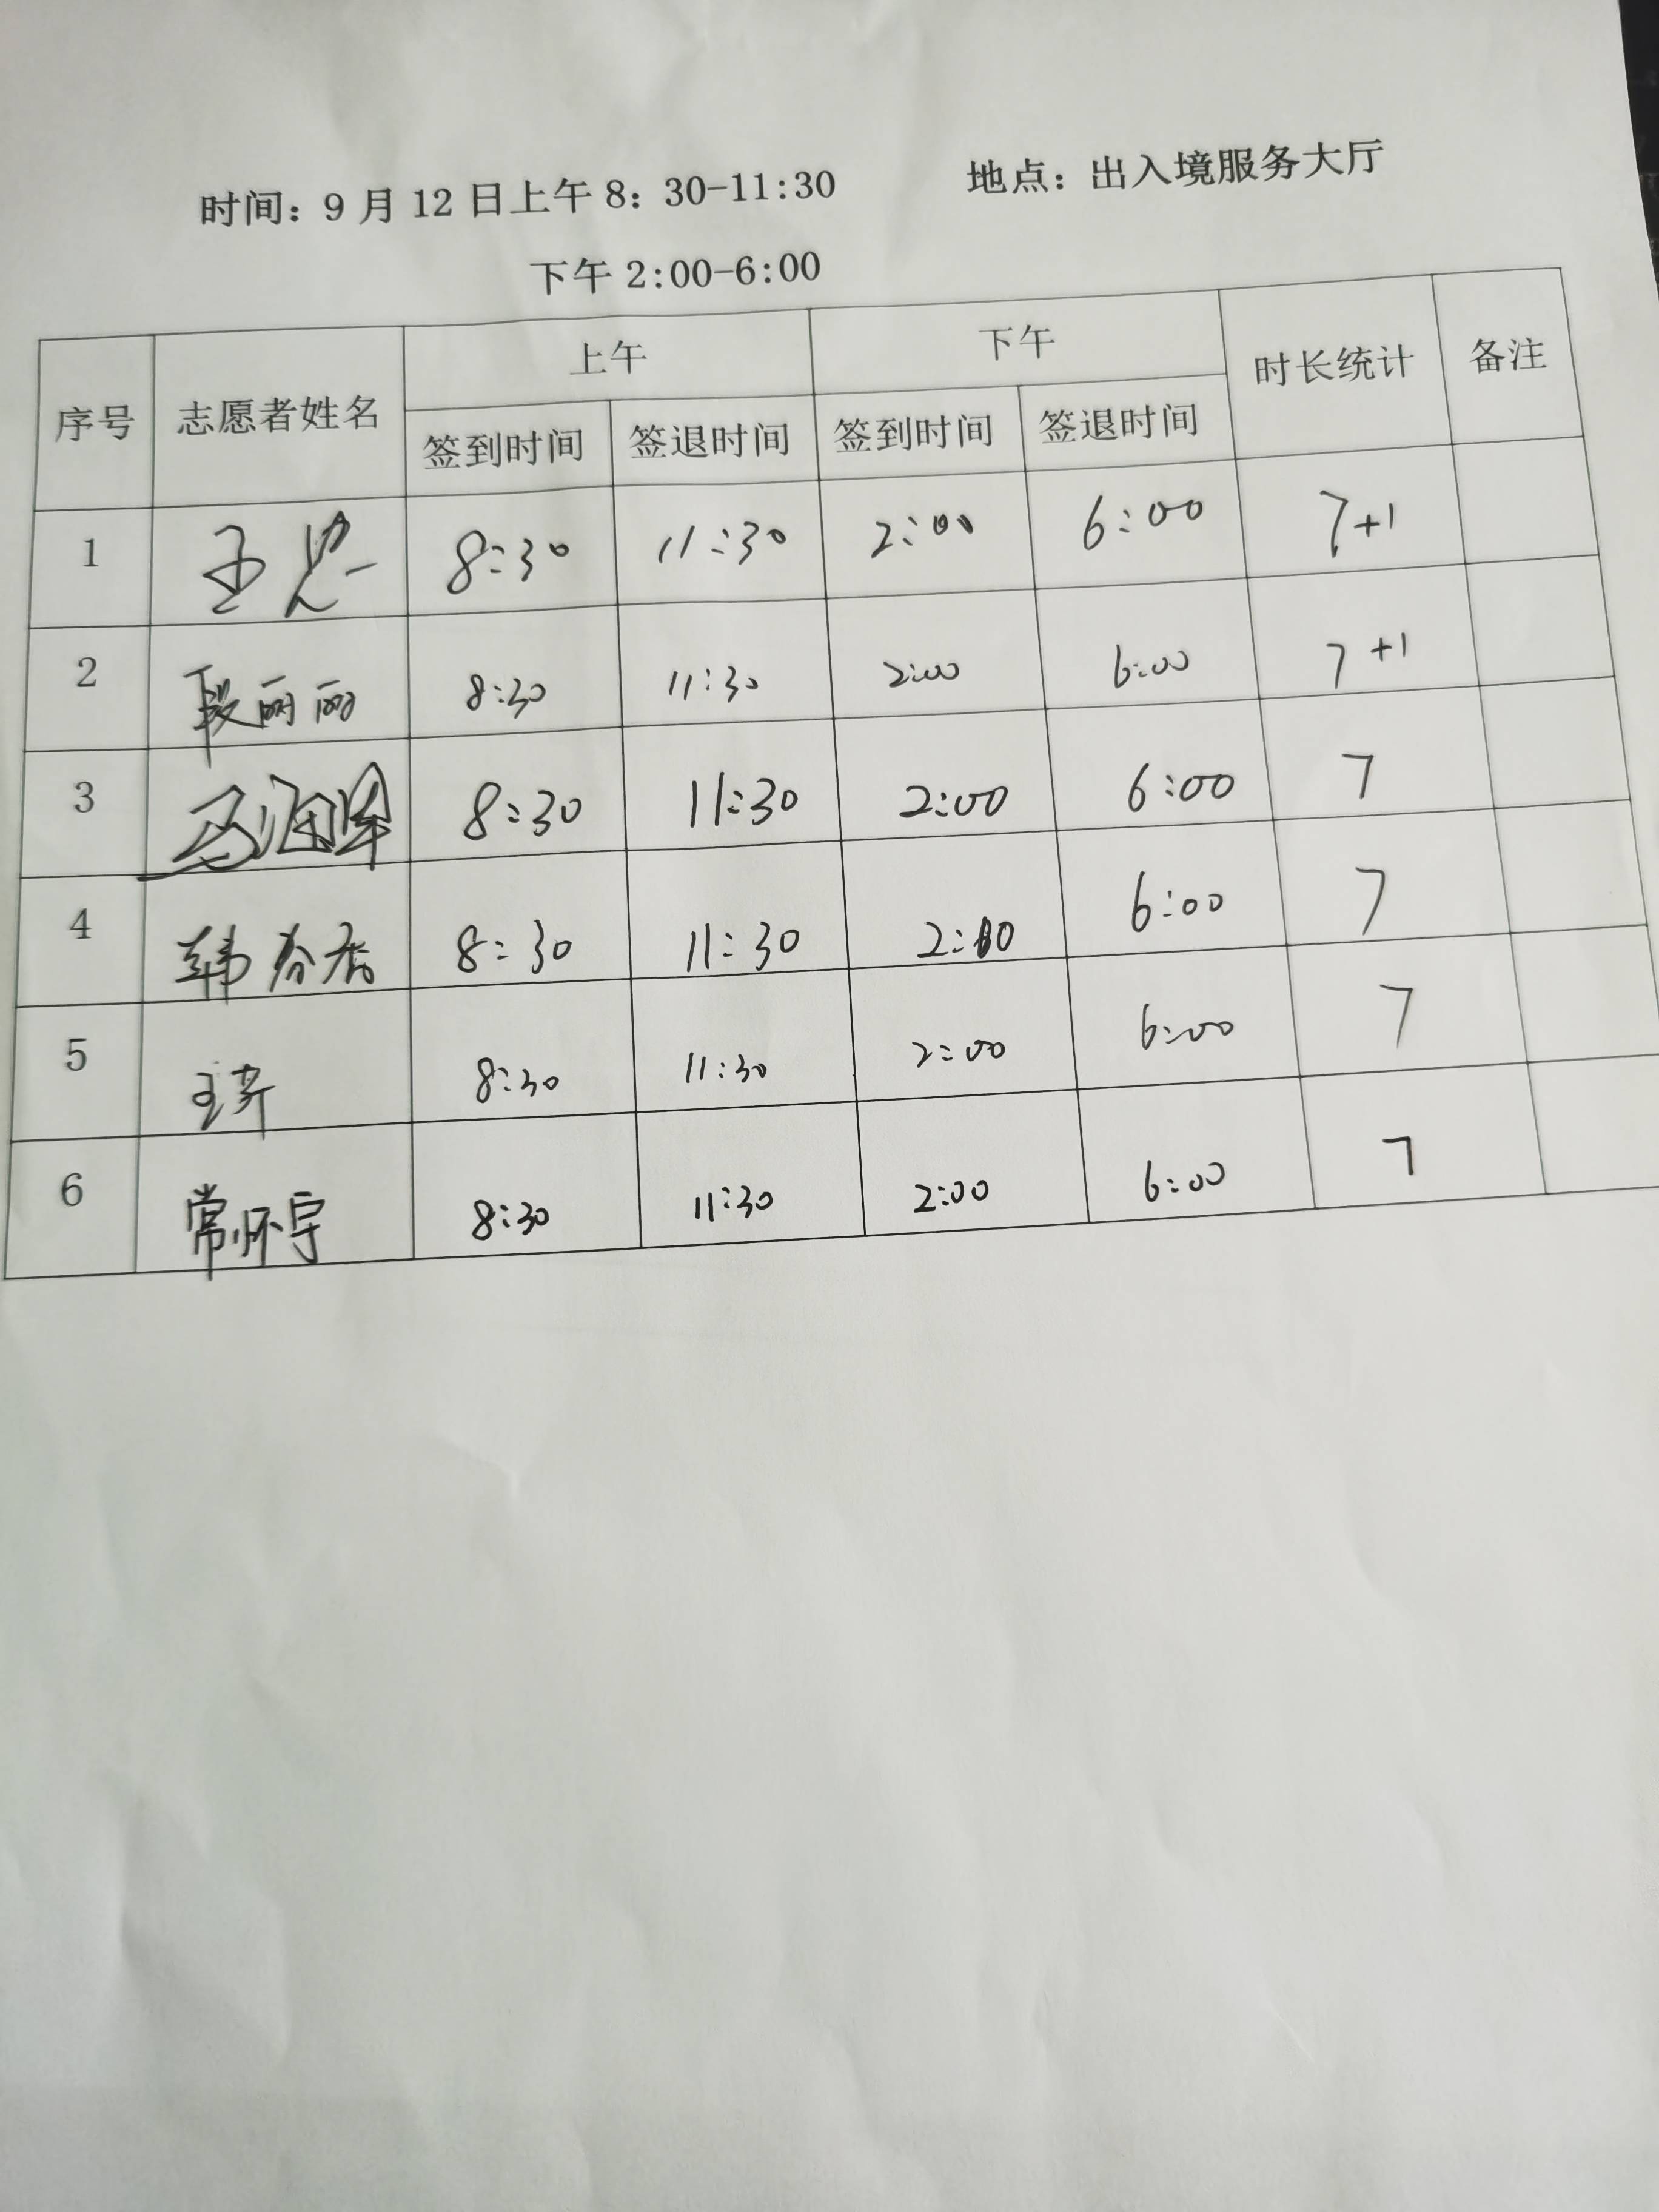 时间：9月12日上午8：30-11:30 地点：出入境服务大厅
下午2:00-6:00
序号 志愿者姓名 上午 下午 时长统计 备注
签到时间 签退时间 签到时间 签退时间
1 8:30 11:30 2:00 6:00 7+1
2 段丽丽 8:30 11:30 2:00 6:00 7+1
3 8:30 11:30 2:00 6:00 7
4 韩 8:30 11:30 2:00 6:00 7
5 8:30 11:30 2:00 6:00 7
6 常怀宇 8:30 11:30 2:00 6:00 7